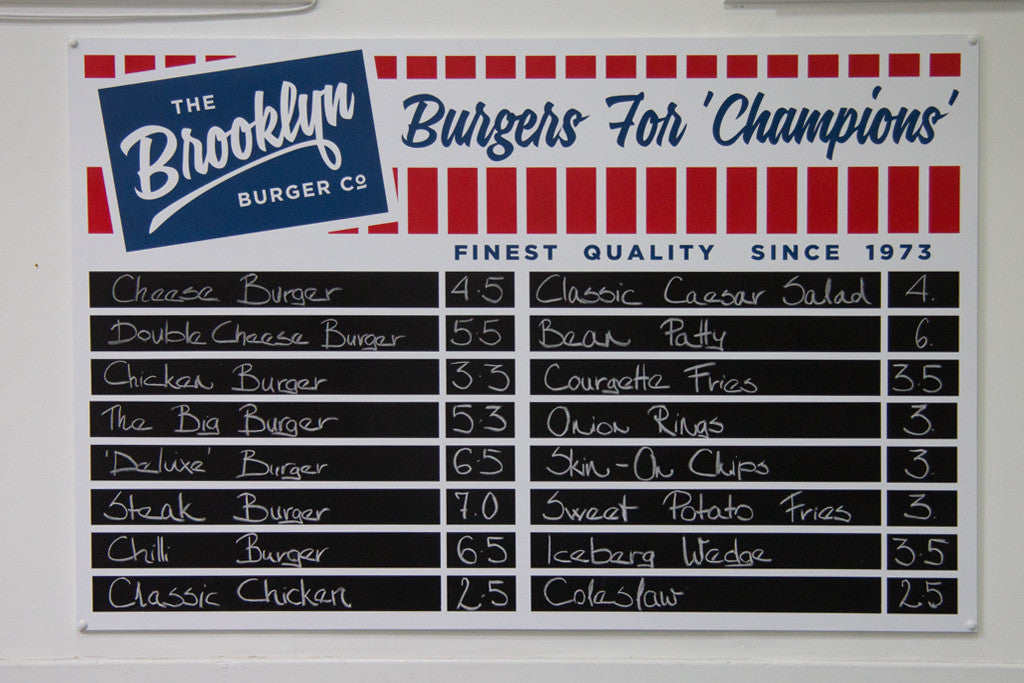 THE
Brooklyn
BURGER Cº
Burgers For 'Champions'
FINEST QUALITY SINCE 1973
Cheese Burger 4.5
Double Cheese Burger 5.5
Chicken Burger 3.3
The Big Burger 5.3
'Deluxe' Burger 6.5
Steak Burger 7.0
Chilli Burger 6.5
Classic Chicken 2.5
Classic Caesar Salad 4.
Bean Patty 6.
Courgette Fries 3.5
Onion Rings 3.
Skin-On Chips 3.
Sweet Potato Fries 3.
Iceberg Wedge 3.5
Coleslaw 2.5